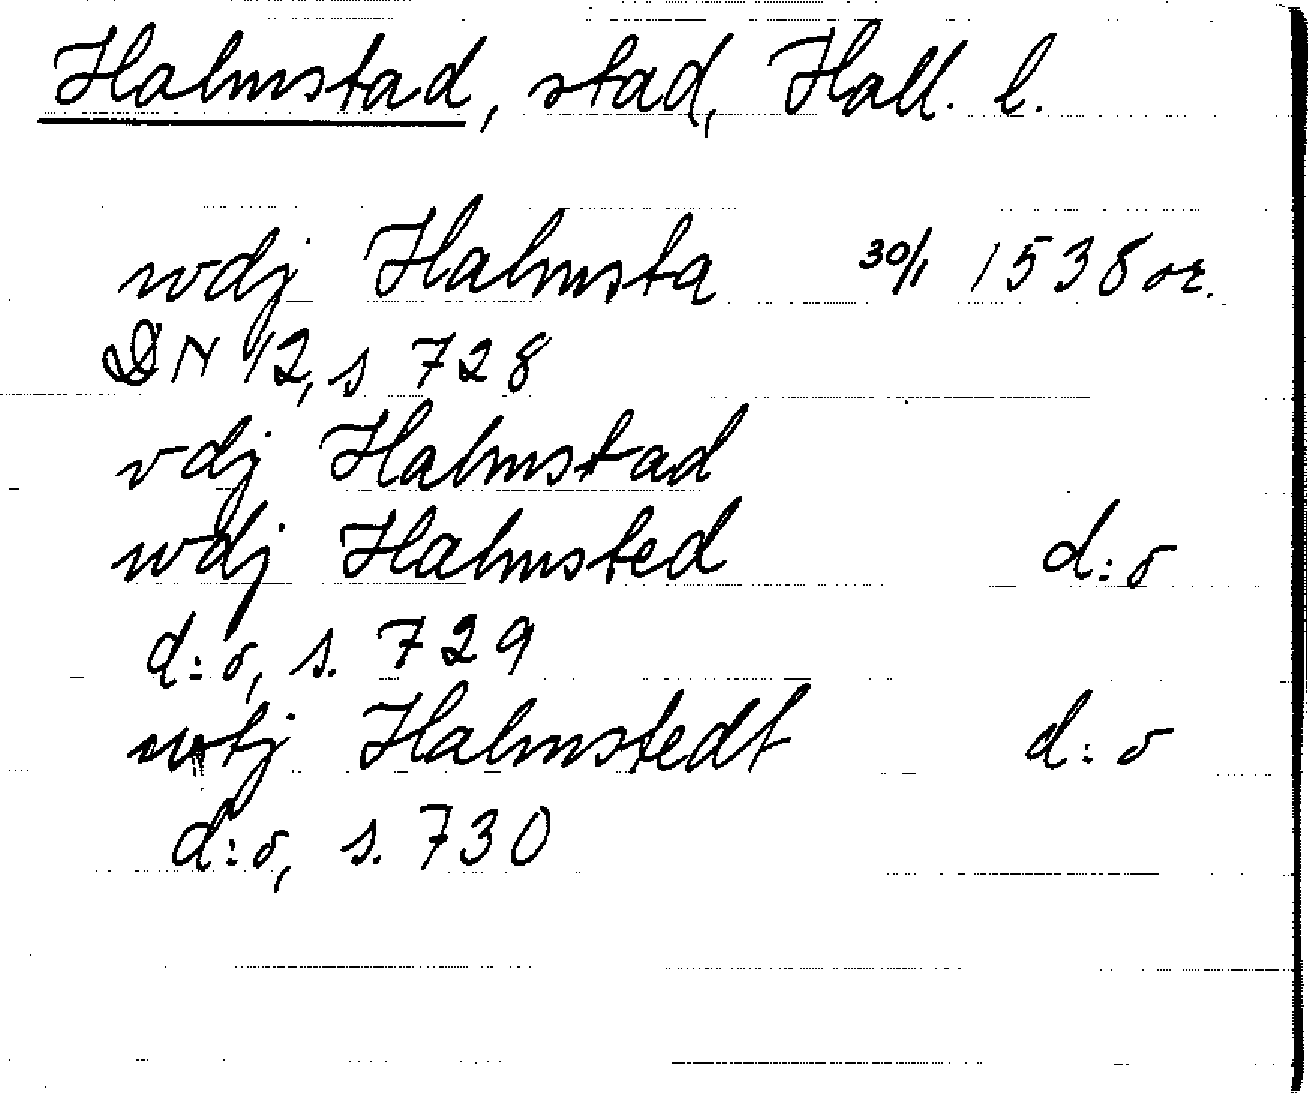 Halmstad, stad, Hall. l.
wdj Halmsta 30/1 1538 or.
DN 12, s 728
vdj Halmstad
wdj Halmsted d:o
d:o, s. 729
wtj Halmstedt d:o
d:o, s. 730